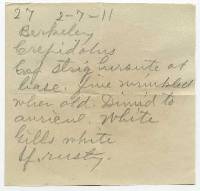 27 2-7-11
Berkeley
Crepidotus
Cap strig hirsute at
base. Fine wrinkled
when old. Dimid to
auricul. White
Gills white
Sp. rusty.